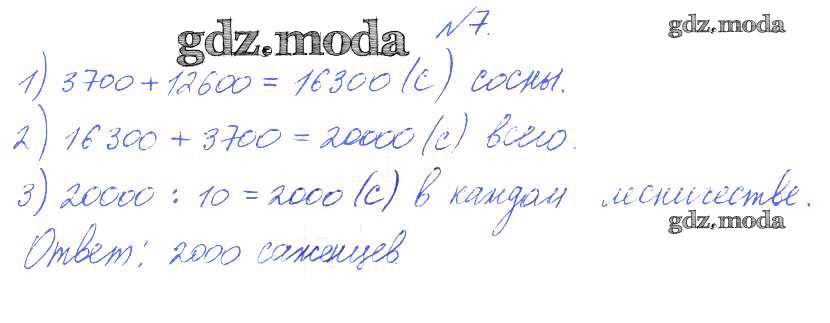 №7.
gdz.moda
gdz.moda
1) 3700 + 12600 = 16300 (с) сосны.
2) 16300 + 3700 = 20000 (с) всего.
3) 20000 : 10 = 2000 (с) в каждом лесничестве.
gdz.moda
Ответ: 2000 саженцев